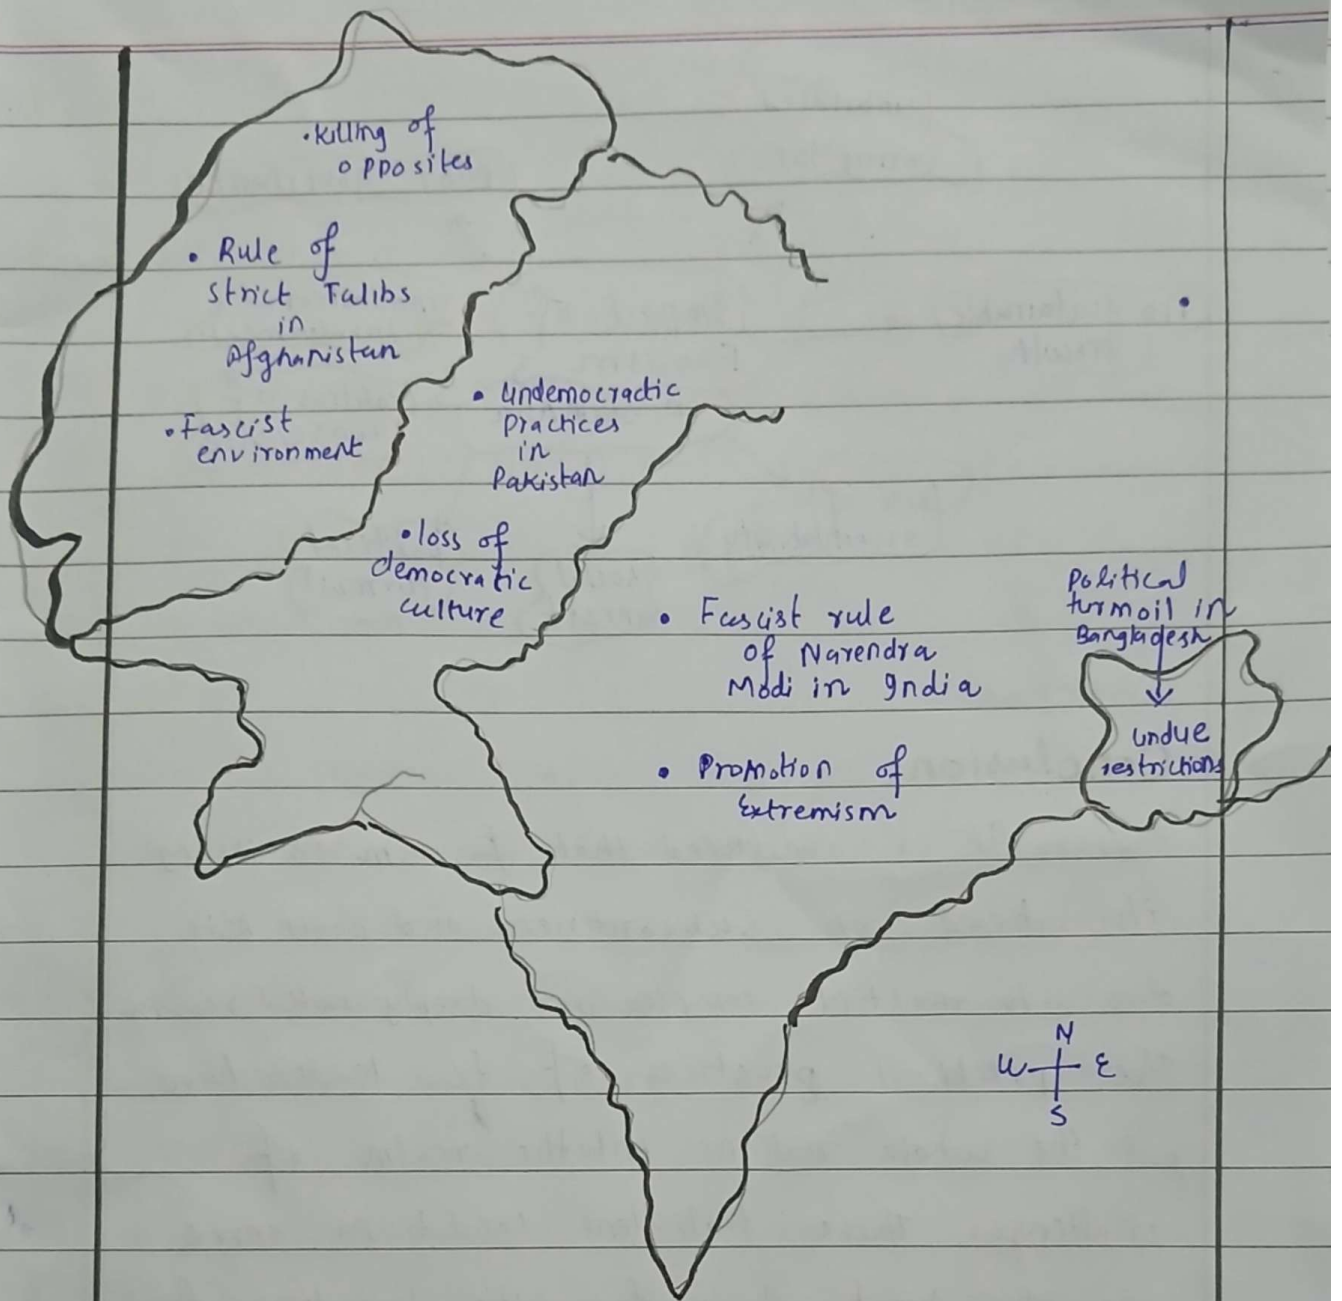 •Killing of
opposites
• Rule of
Strict Talibs
in
Afghanistan
•Fascist
environment
• Undemocractic
Practices
in
Pakistan
•loss of
democratic
culture
• Fascist rule
of Narendra
Modi in India
• Promotion of
Extremism
Political
turmoil in
Bangladesh
undue
restrictions
N
W E
S